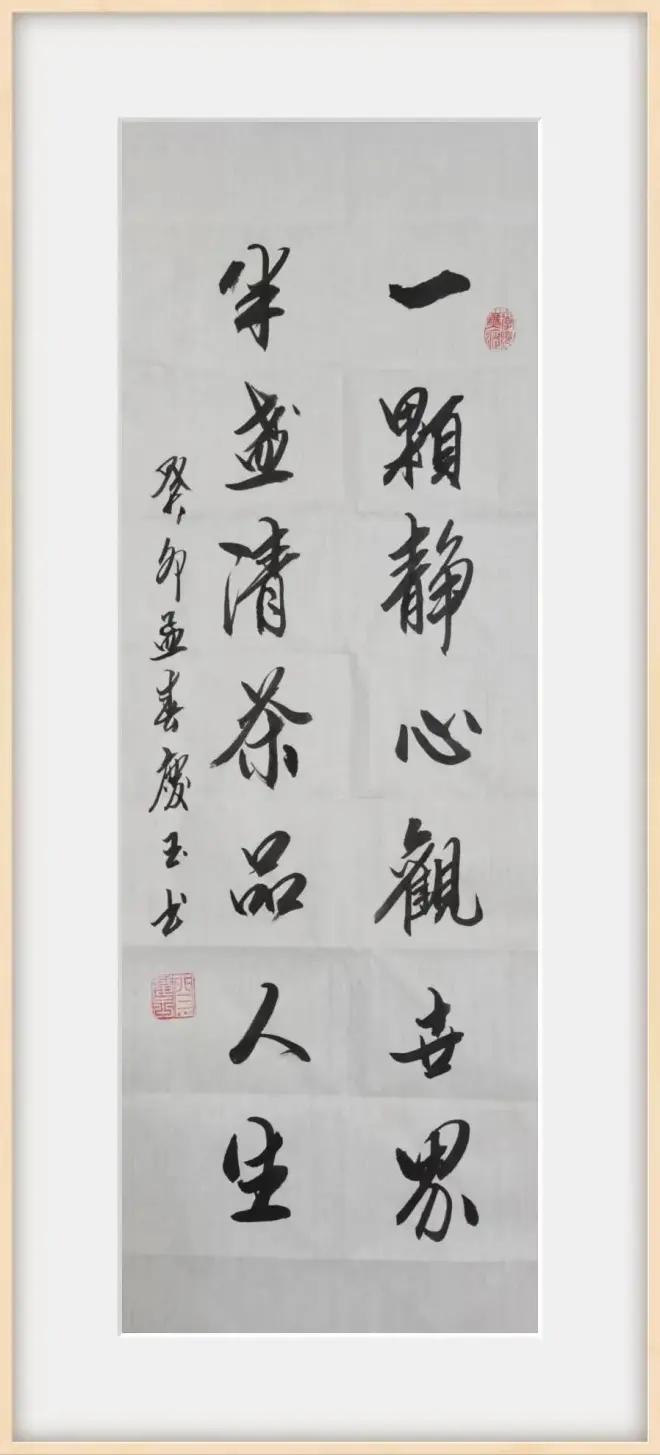 一顆静心觀世界
半盏清茶品人生
癸卯孟春慶玉书